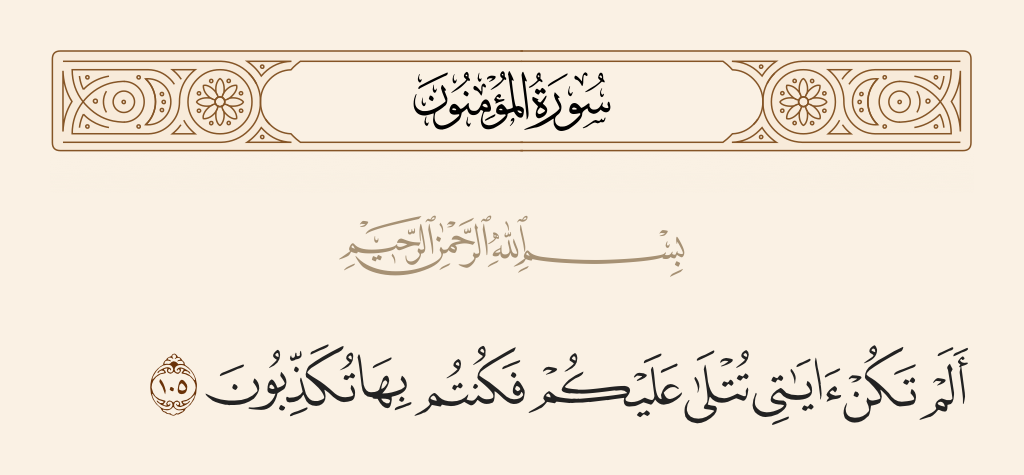 سُورَةُ الْمُؤْمِنُونَ
بِسْمِ ٱللَّهِ ٱلرَّحْمَٰنِ ٱلرَّحِيمِ
أَلَمْ تَكُنْ ءَايَـٰتِى تُتْلَىٰ عَلَيْكُمْ فَكُنتُم بِهَا تُكَذِّبُونَ ١٠٥